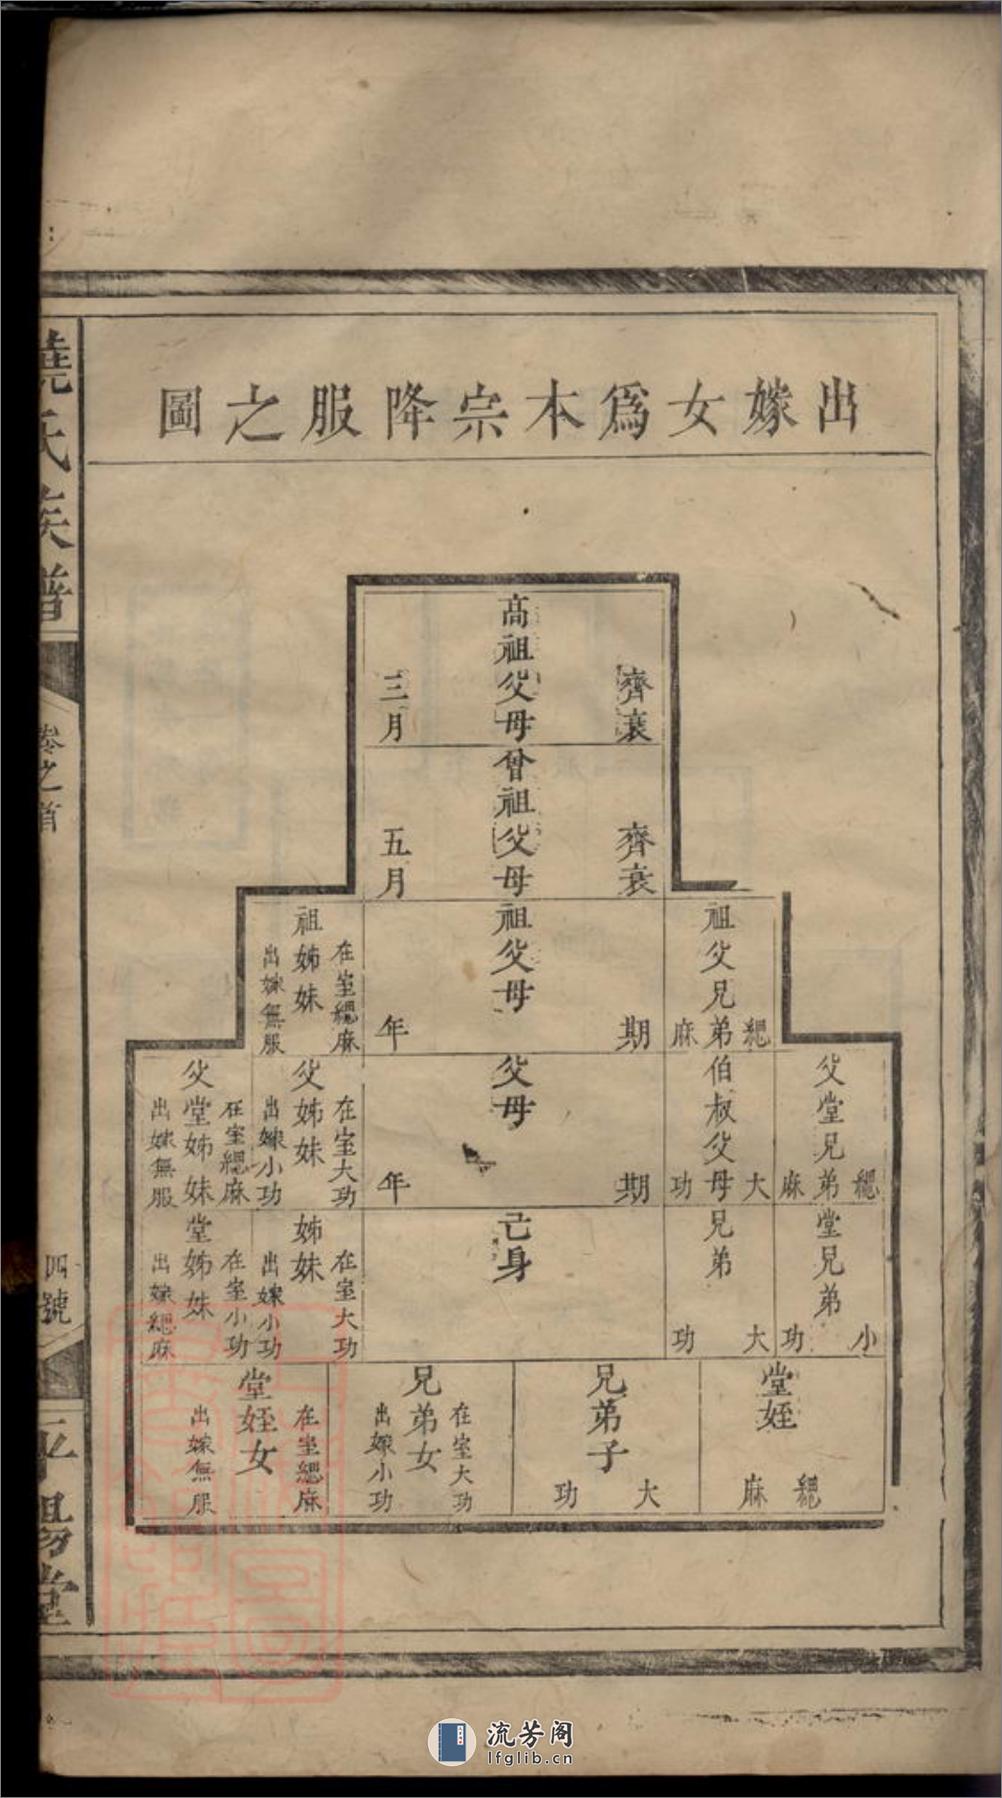 出嫁女爲本宗降服之圖
高祖父母
齊衰
三月
曾祖父母
齊衰
五月
祖父兄弟
緦麻
祖父母
期年
祖姊妹
在室緦麻
出嫁無服
父堂兄弟
緦麻
伯叔父母
大功
父母
期年
父姊妹
在室大功
出嫁小功
父堂姊妹
在室緦麻
出嫁無服
堂兄弟
小功
兄弟
大功
己身
姊妹
在室大功
出嫁小功
堂姊妹
在室小功
出嫁緦麻
堂姪
緦麻
兄弟子
大功
兄弟女
在室大功
出嫁小功
堂姪女
在室緦麻
出嫁無服
饒氏族譜
卷之首
四號
平陽堂
流芳阁
lfglib.cn